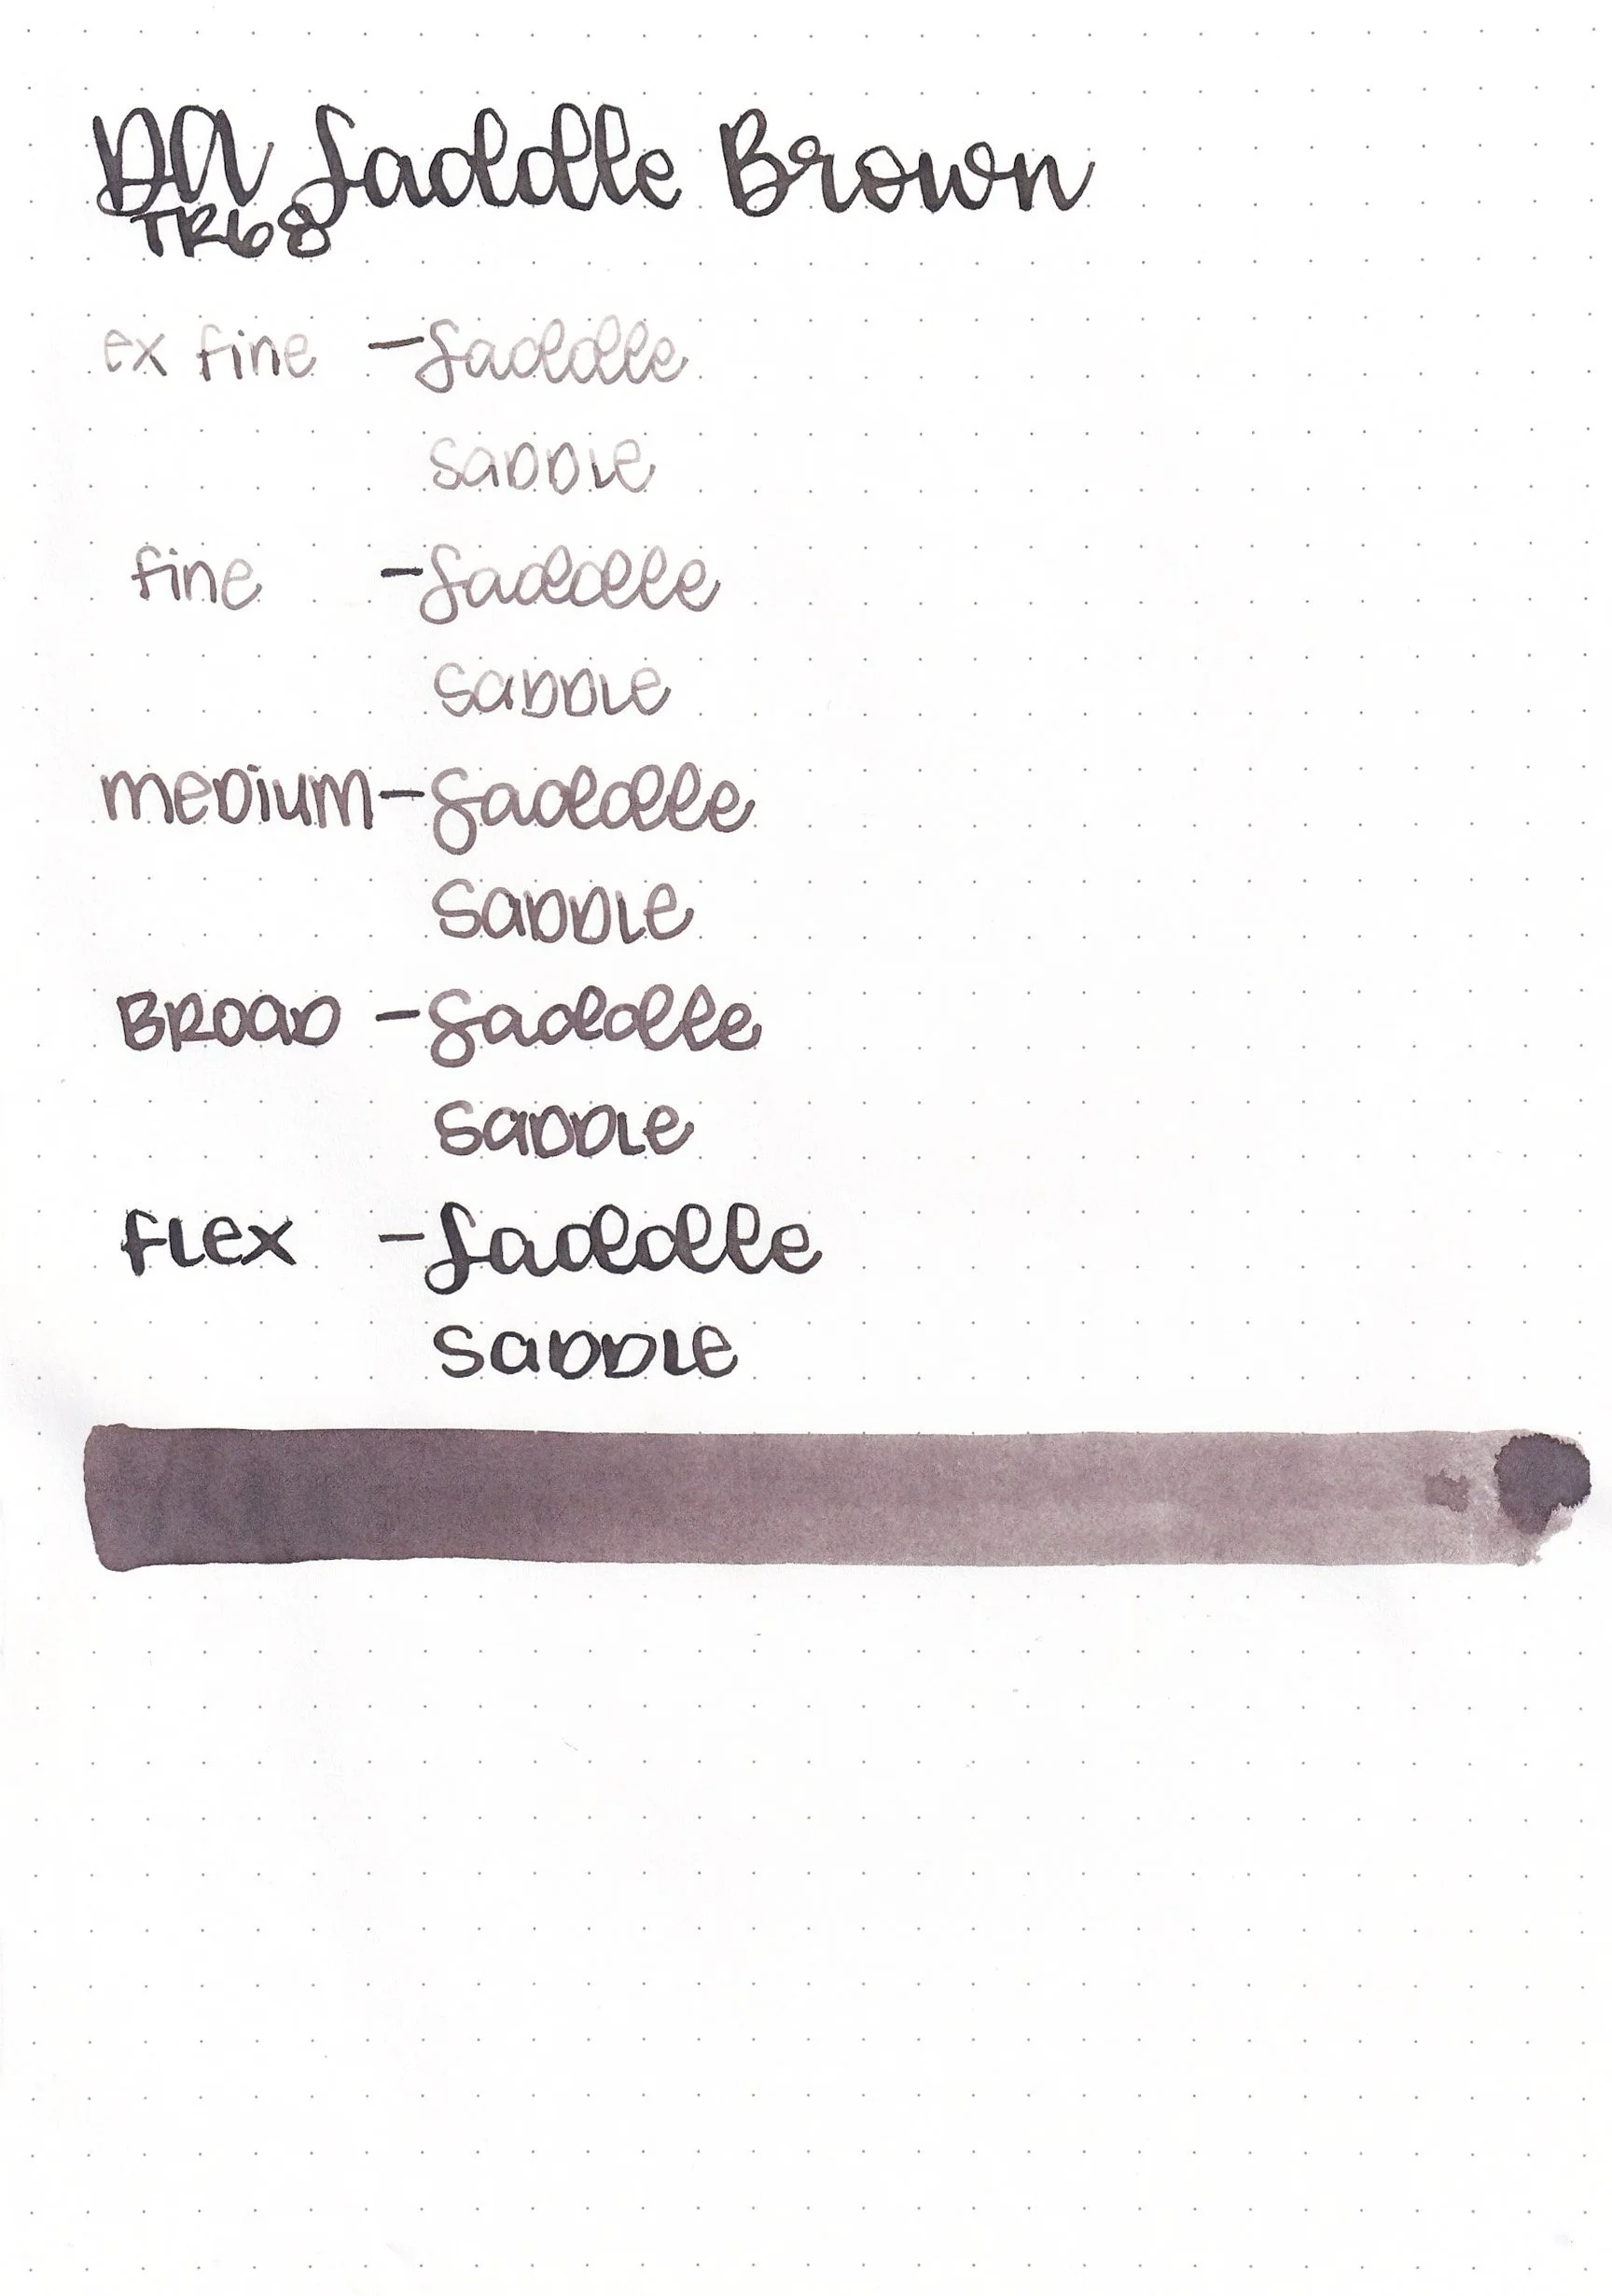 DA Saddle Brown
TR68
ex fine - Saddle
SADDLE
fine - Saddle
SADDLE
meDium - Saddle
SADDLE
BROAD - Saddle
SADDLE
FLex - Saddle
SADDLE